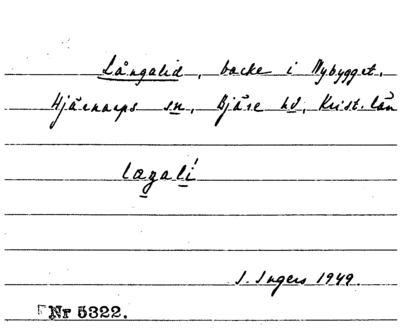 Långalid, backe i Nybygget,
Hjärnarps sn, Bjäre hd, Krist. län
I. Ingers 1949.
Nr 5322.